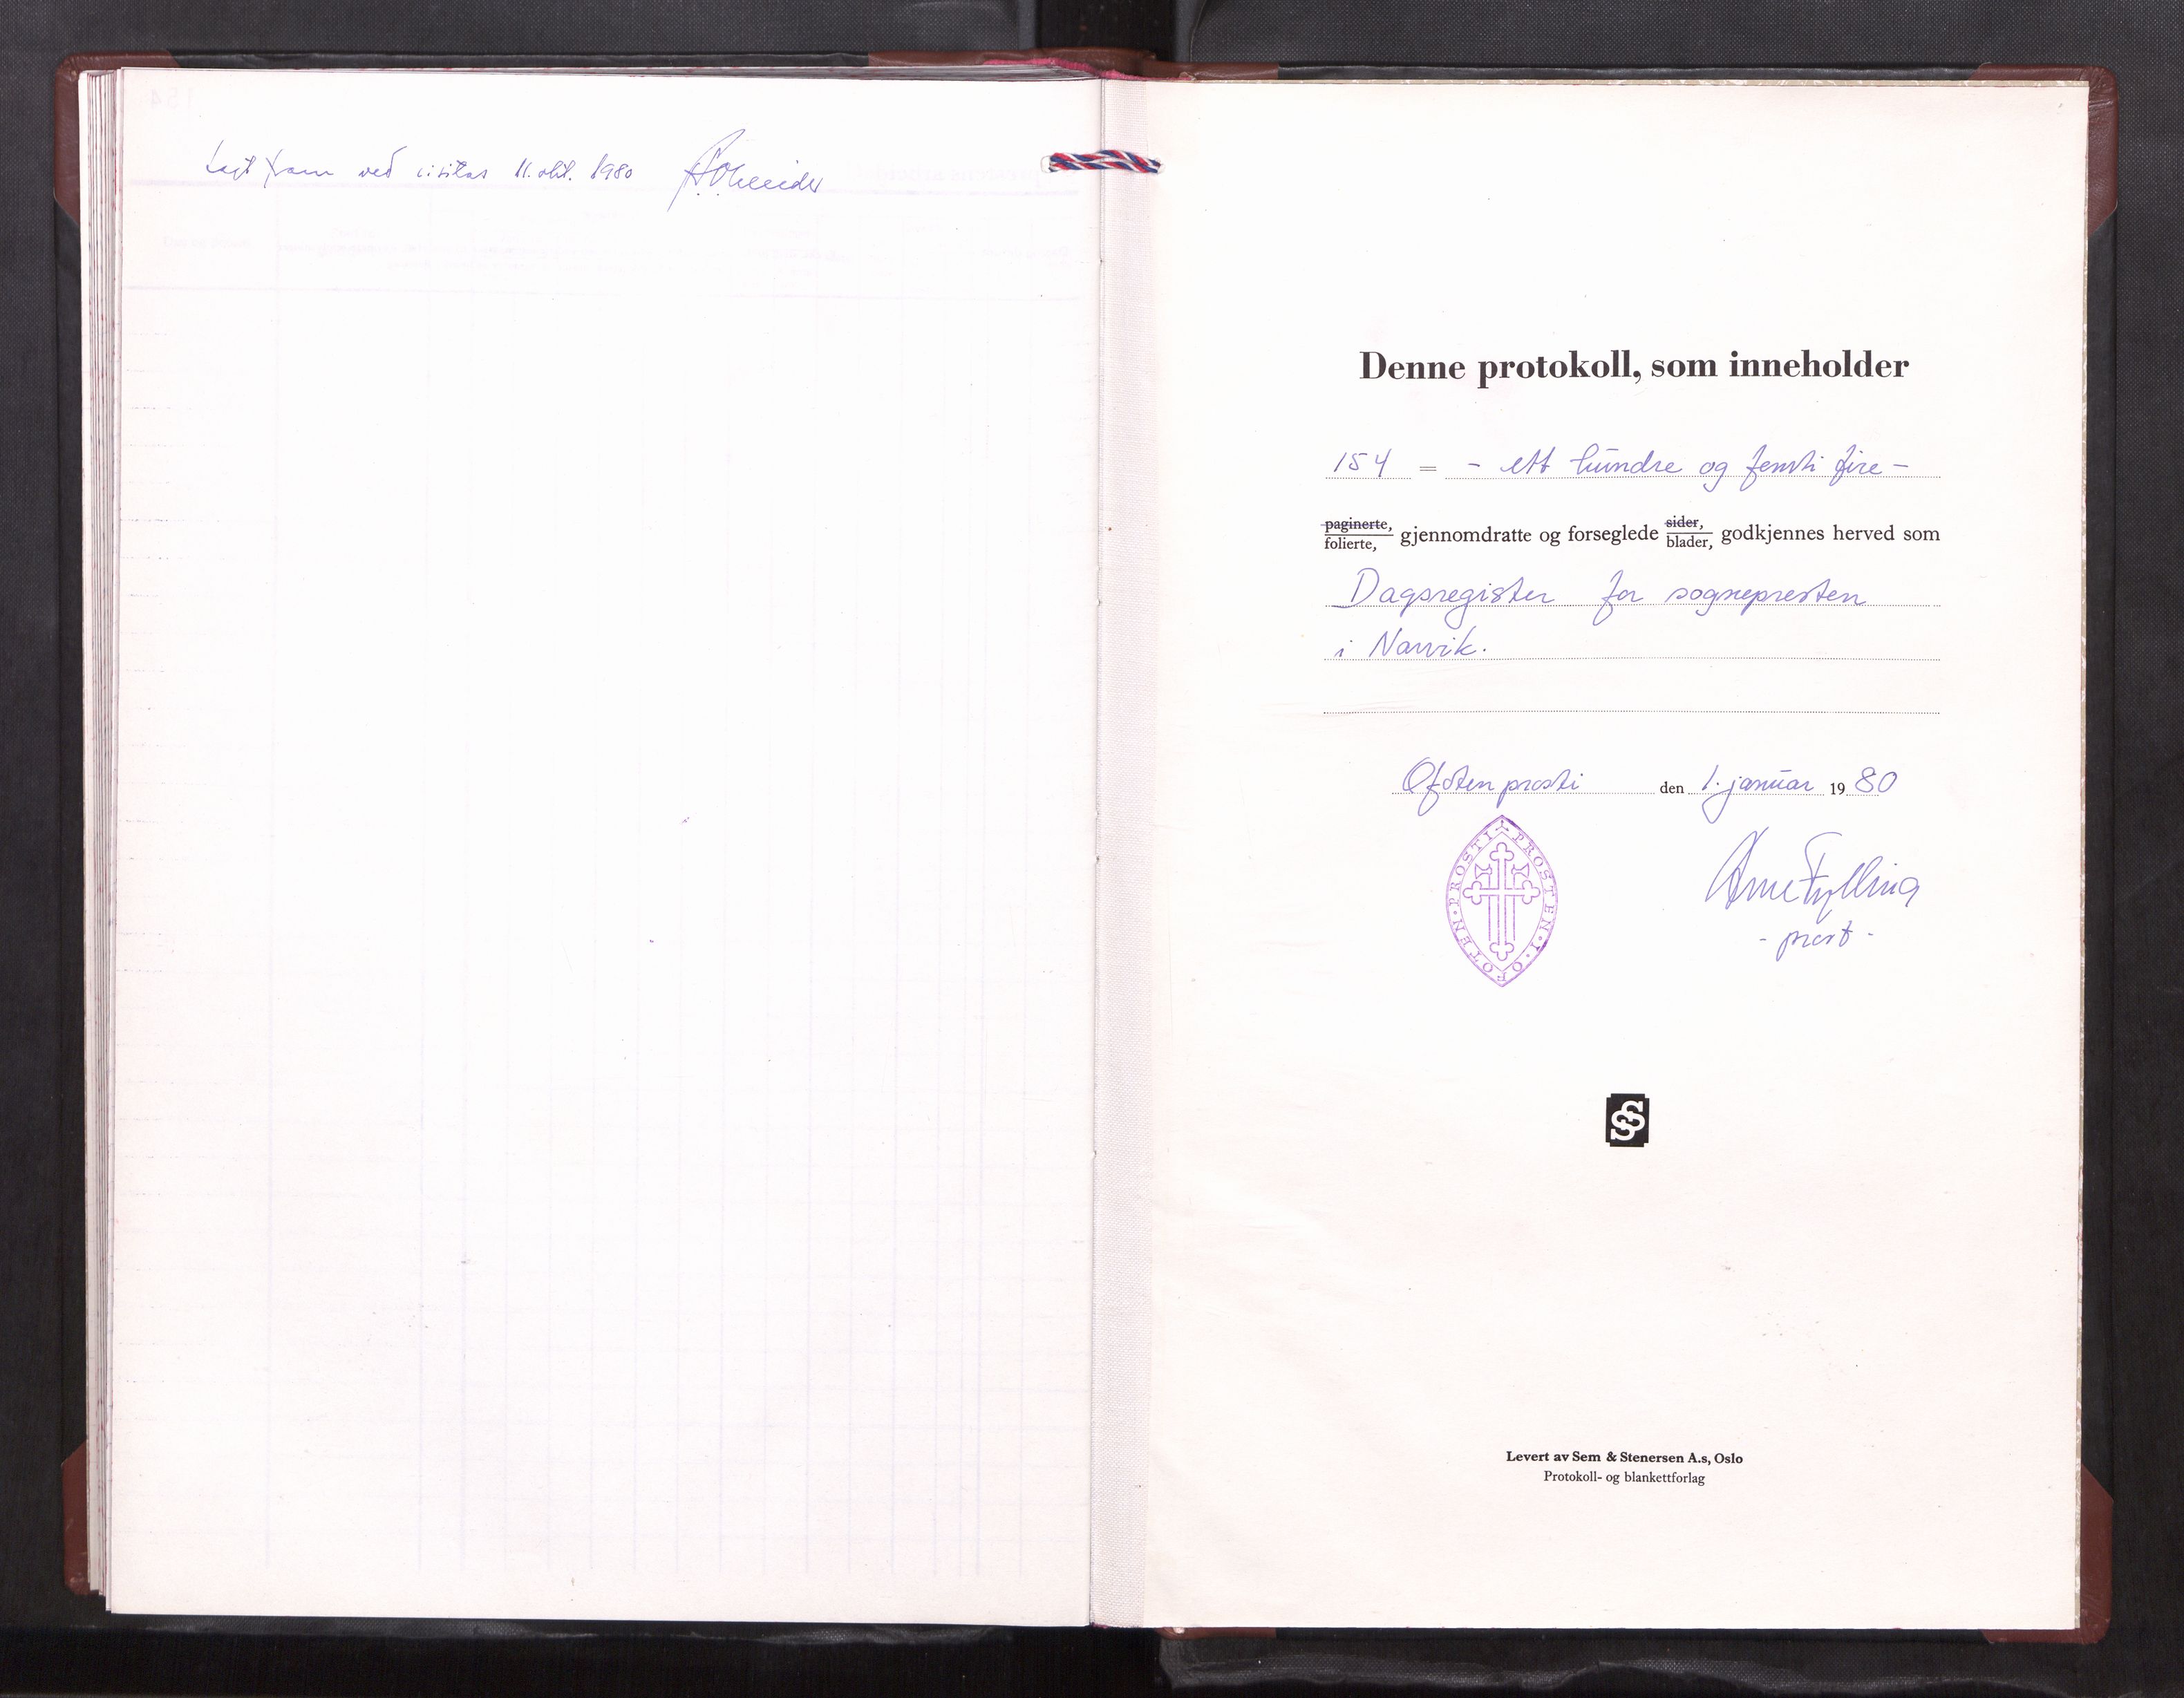 Lagt fram ved visitas 11. okt. 1980
Denne protokoll, som inneholder
154 = - ett hundre og femti fire -
paginerte,
folierte, gjennomdratte og forseglede sider,
blader, godkjennes herved som
Dagsregister for sognepresten
i Narvik.
Ofoten prosti den 1. januar 1980
PROSTEN · I · OFOTEN · PROSTI
Arne Fylling
- prost -
SS
Levert av Sem & Stenersen A.s, Oslo
Protokoll- og blankettforlag